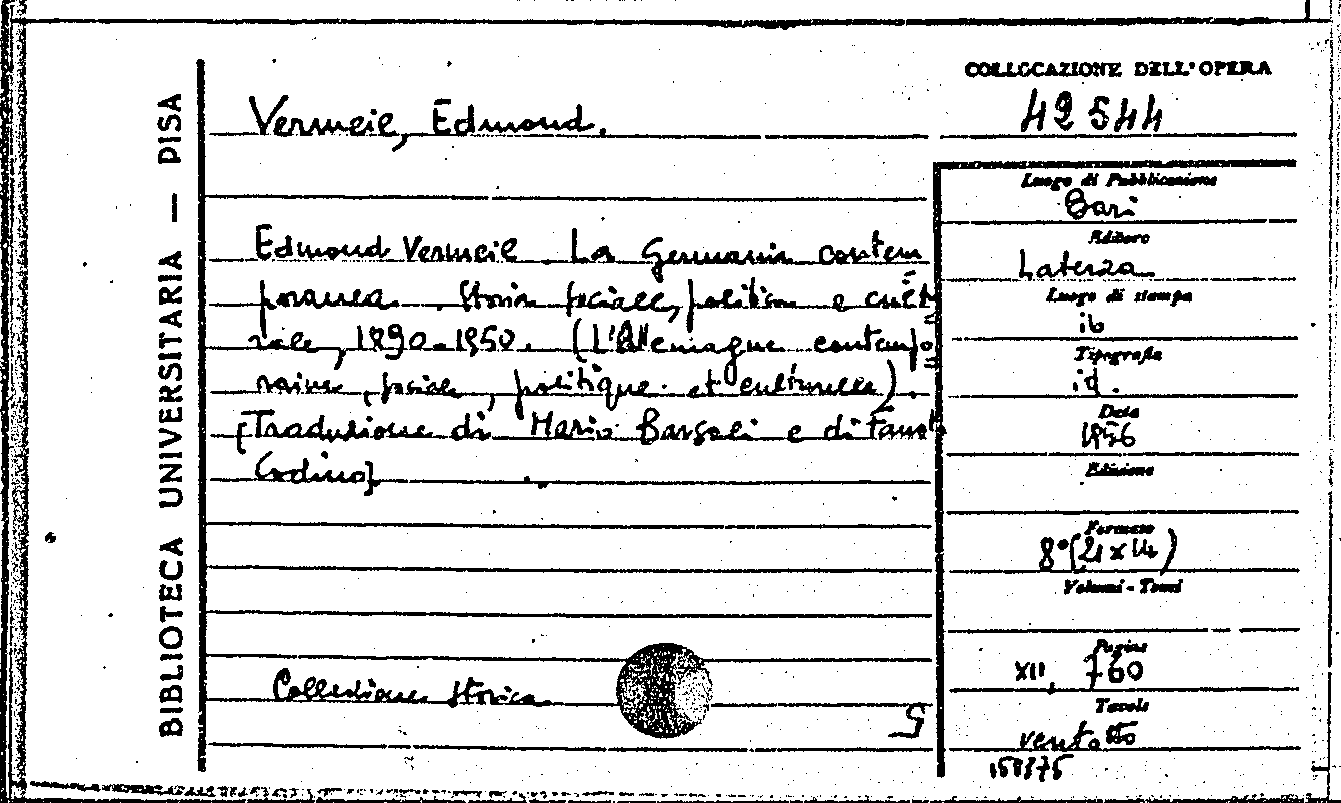 BIBLIOTECA UNIVERSITARIA — PISA
Vermeil, Edmond.
Edmond Vermeil. La Germania contem
poranea. Storia sociale, politica e cultu
rale, 1890-1950. (L'Allemagne contempo
raine, sociale, politique et culturelle).
[Traduzione di Mario Bargoli e di Fausto
Codino].
Collezione storica
COLLOCAZIONE DELL'OPERA
42544
Luogo di Pubblicazione
Bari
Editore
Laterza
Luogo di stampa
ib
Tipografia
id.
Data
1956
Edizione
Formato
8° (21x14)
Volumi - Tomi
Pagine
XII, 760
Tavole
ventotto